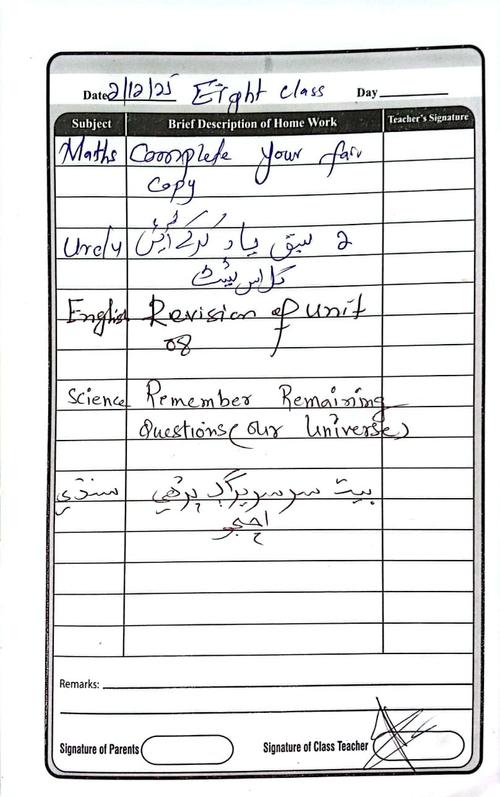 Date 2/12/25 Eight class Day
Subject Brief Description of Home Work Teacher's Signature
Maths Complete your fair
copy
Urdu 2 سبق یاد کرکے آئیں
کلاس ٹیسٹ
English Revision of unit
08
Science Remember Remaining
Questions (our universe)
سنڌي بيت سر سريراڳ پڙهي
اچجو
Remarks:
Signature of Parents Signature of Class Teacher